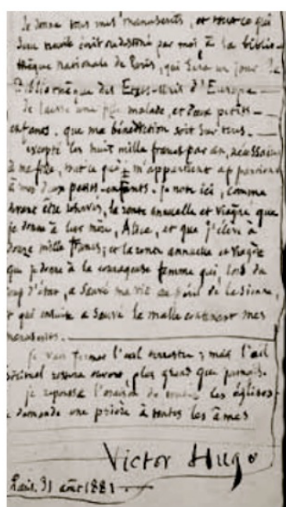 Je donne tous mes manuscrits, et tout ce qui
sera trouvé écrit ou dessiné par moi, à la biblio-
thèque nationale de Paris, qui sera un jour la
Bibliothèque des États-Unis d'Europe.
Je laisse une fille malade, et deux petits-
enfants, que ma bénédiction soit sur tous.
excepté les huit mille francs par an, nécessaires
à ma fille, tout ce qui m'appartient appartient
à mes deux petits-enfants. je note ici, comme
devant être réservés, la rente annuelle et viagère que
je donne à leur mère, Alice, et que j'élève à
douze mille francs; et la rente annuelle et viagère
que je donne à la courageuse femme qui, lors du
coup d'état, a sauvé ma vie au péril de la sienne,
et qui ensuite a sauvé la malle contenant mes
manuscrits.
je vais fermer l'œil terrestre; mais l'œil
spirituel restera ouvert, plus grand que jamais.
je repousse l'oraison de toutes les églises.
je demande une prière à toutes les âmes
Victor Hugo
Paris. 31 août 1881.